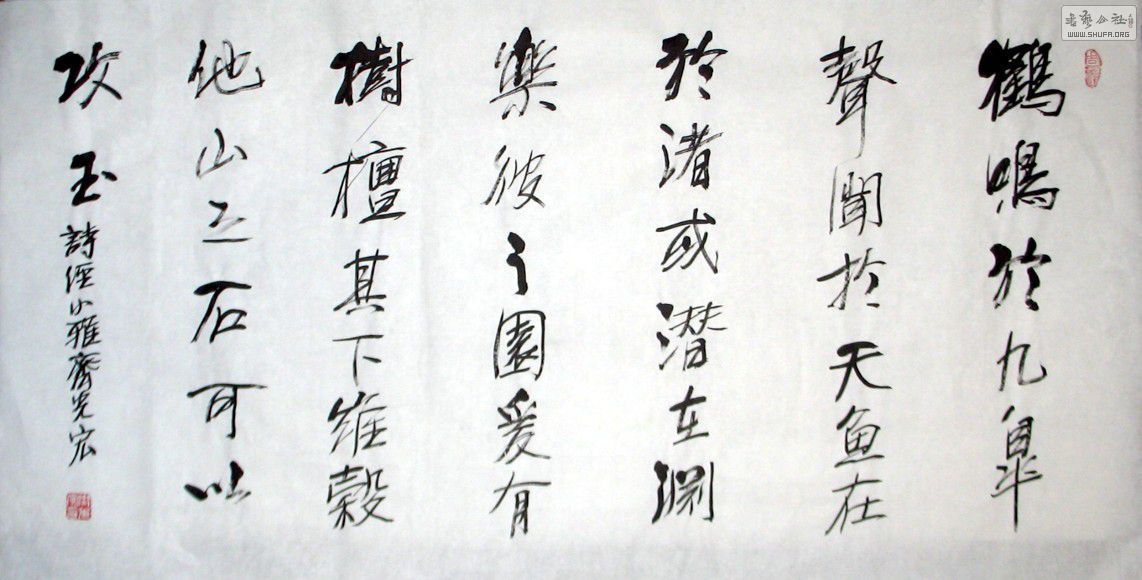 鶴鳴於九皐
聲聞於天魚在
於渚或潜在渊
樂彼之園爰有
樹檀其下維榖
他山之石可以
攻玉
詩經小雅齊光宏
書艺公社
WWW.SHUFA.ORG